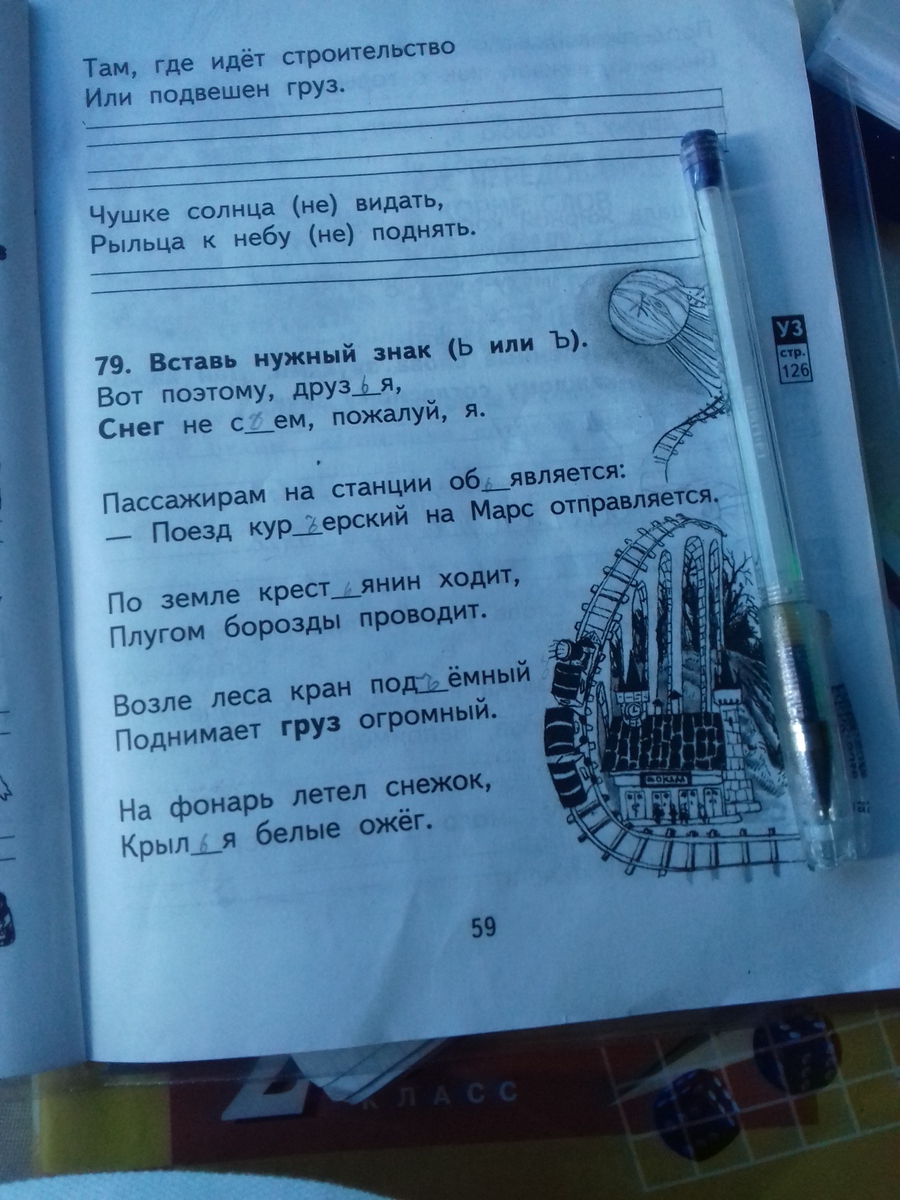 Там, где идёт строительство
Или подвешен груз.
Чушке солнца (не) видать,
Рыльца к небу (не) поднять.
УЗ
стр.
126
79. Вставь нужный знак (Ь или Ъ).
Вот поэтому, друзья,
Снег не съем, пожалуй, я.
Пассажирам на станции обьявляется:
— Поезд куръерский на Марс отправляется.
По земле крестьянин ходит,
Плугом борозды проводит.
Возле леса кран подъёмный
Поднимает груз огромный.
На фонарь летел снежок,
Крылья белые ожёг.
59
2 КЛАСС